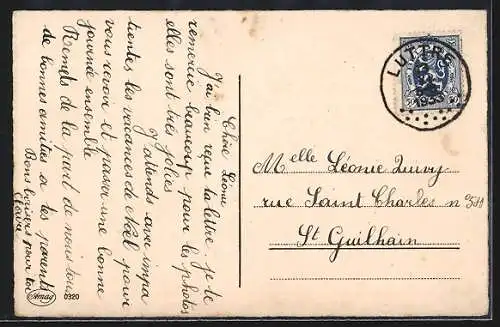 Chère Léonie
J'ai bien reçu ta lettre, je te
remercie beaucoup pour tes photos
elles sont très jolies.
J'attends avec impa
tientes les vacances de Noël pour
vous revoir et passer une bonne
journée ensemble
Remets de la part de nous tous
de bonnes amitiés a tes parents
Bons baisers pour toi
Claire
Amag
0320
1933
Melle Léonie
rue Saint Charles no 511
St Guilhain